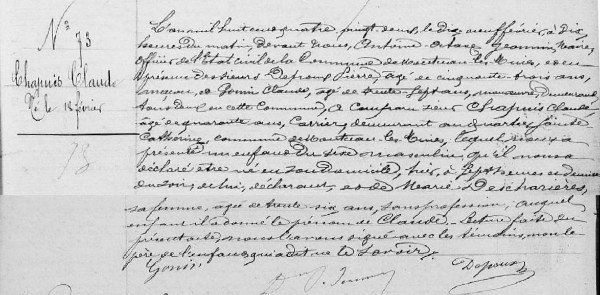 N° 73
Chapuis Claude
Né le 18 février
73
L'an mil huit cent quatre vingt deux, le dix neuf février, à dix
heures du matin, devant nous, Antoine Octave Jeannin, Maire,
Officier de l'Etat civil de la Commune de Montceau les Mines, est en
présence des sieurs Pierre, agé de cinquante trois ans,
et Gonin Claude, agé de trente sept ans, demeurant
tous deux en cette Commune, a comparu sieur Chapuis Claude
agé de quarante ans, Carrier, demeurant au quartier Sainte
Catherine, commune de Montceau les Mines, lequel nous a
présenté un enfant du sexe masculin, qu'il nous a
déclaré être né en son domicile, hier, à sept heures et demie
du soir, de lui, déclarant, et de Marie Descharrières,
sa femme, agée de trente six ans, sans profession, auquel
enfant il a donné le prénom de Claude. Lecture faite du
présent acte, nous l'avons signé avec les témoins, non le
père de l'enfant qui a dit ne le savoir.
Gonin